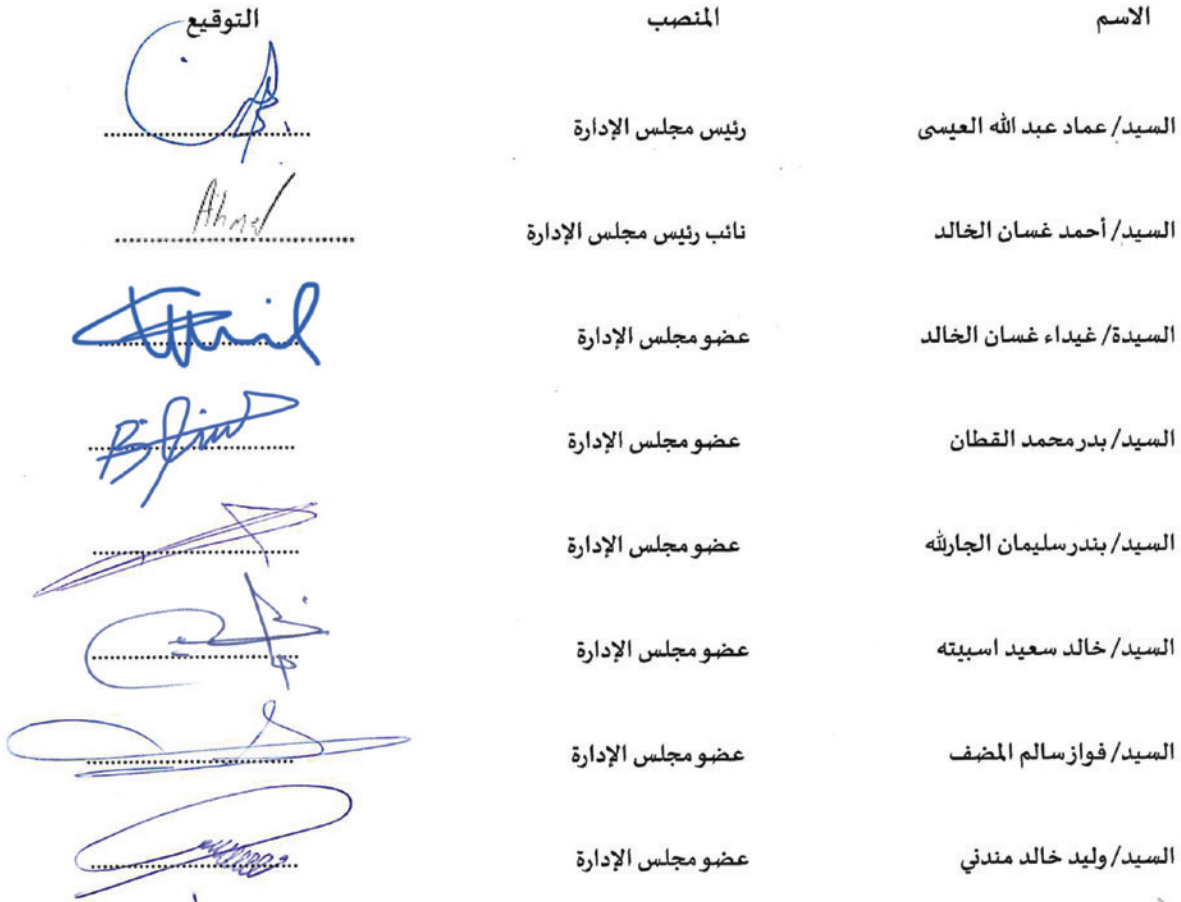 الاسم المنصب التوقيع
السيد/ عماد عبد الله العيسى رئيس مجلس الإدارة
السيد/ أحمد غسان الخالد نائب رئيس مجلس الإدارة Ahmed
السيدة/ غيداء غسان الخالد عضو مجلس الإدارة
السيد/ بدر محمد القطان عضو مجلس الإدارة
السيد/ بندر سليمان الجارلله عضو مجلس الإدارة
السيد/ خالد سعيد اسبيته عضو مجلس الإدارة
السيد/ فواز سالم المضف عضو مجلس الإدارة
السيد/ وليد خالد مندني عضو مجلس الإدارة